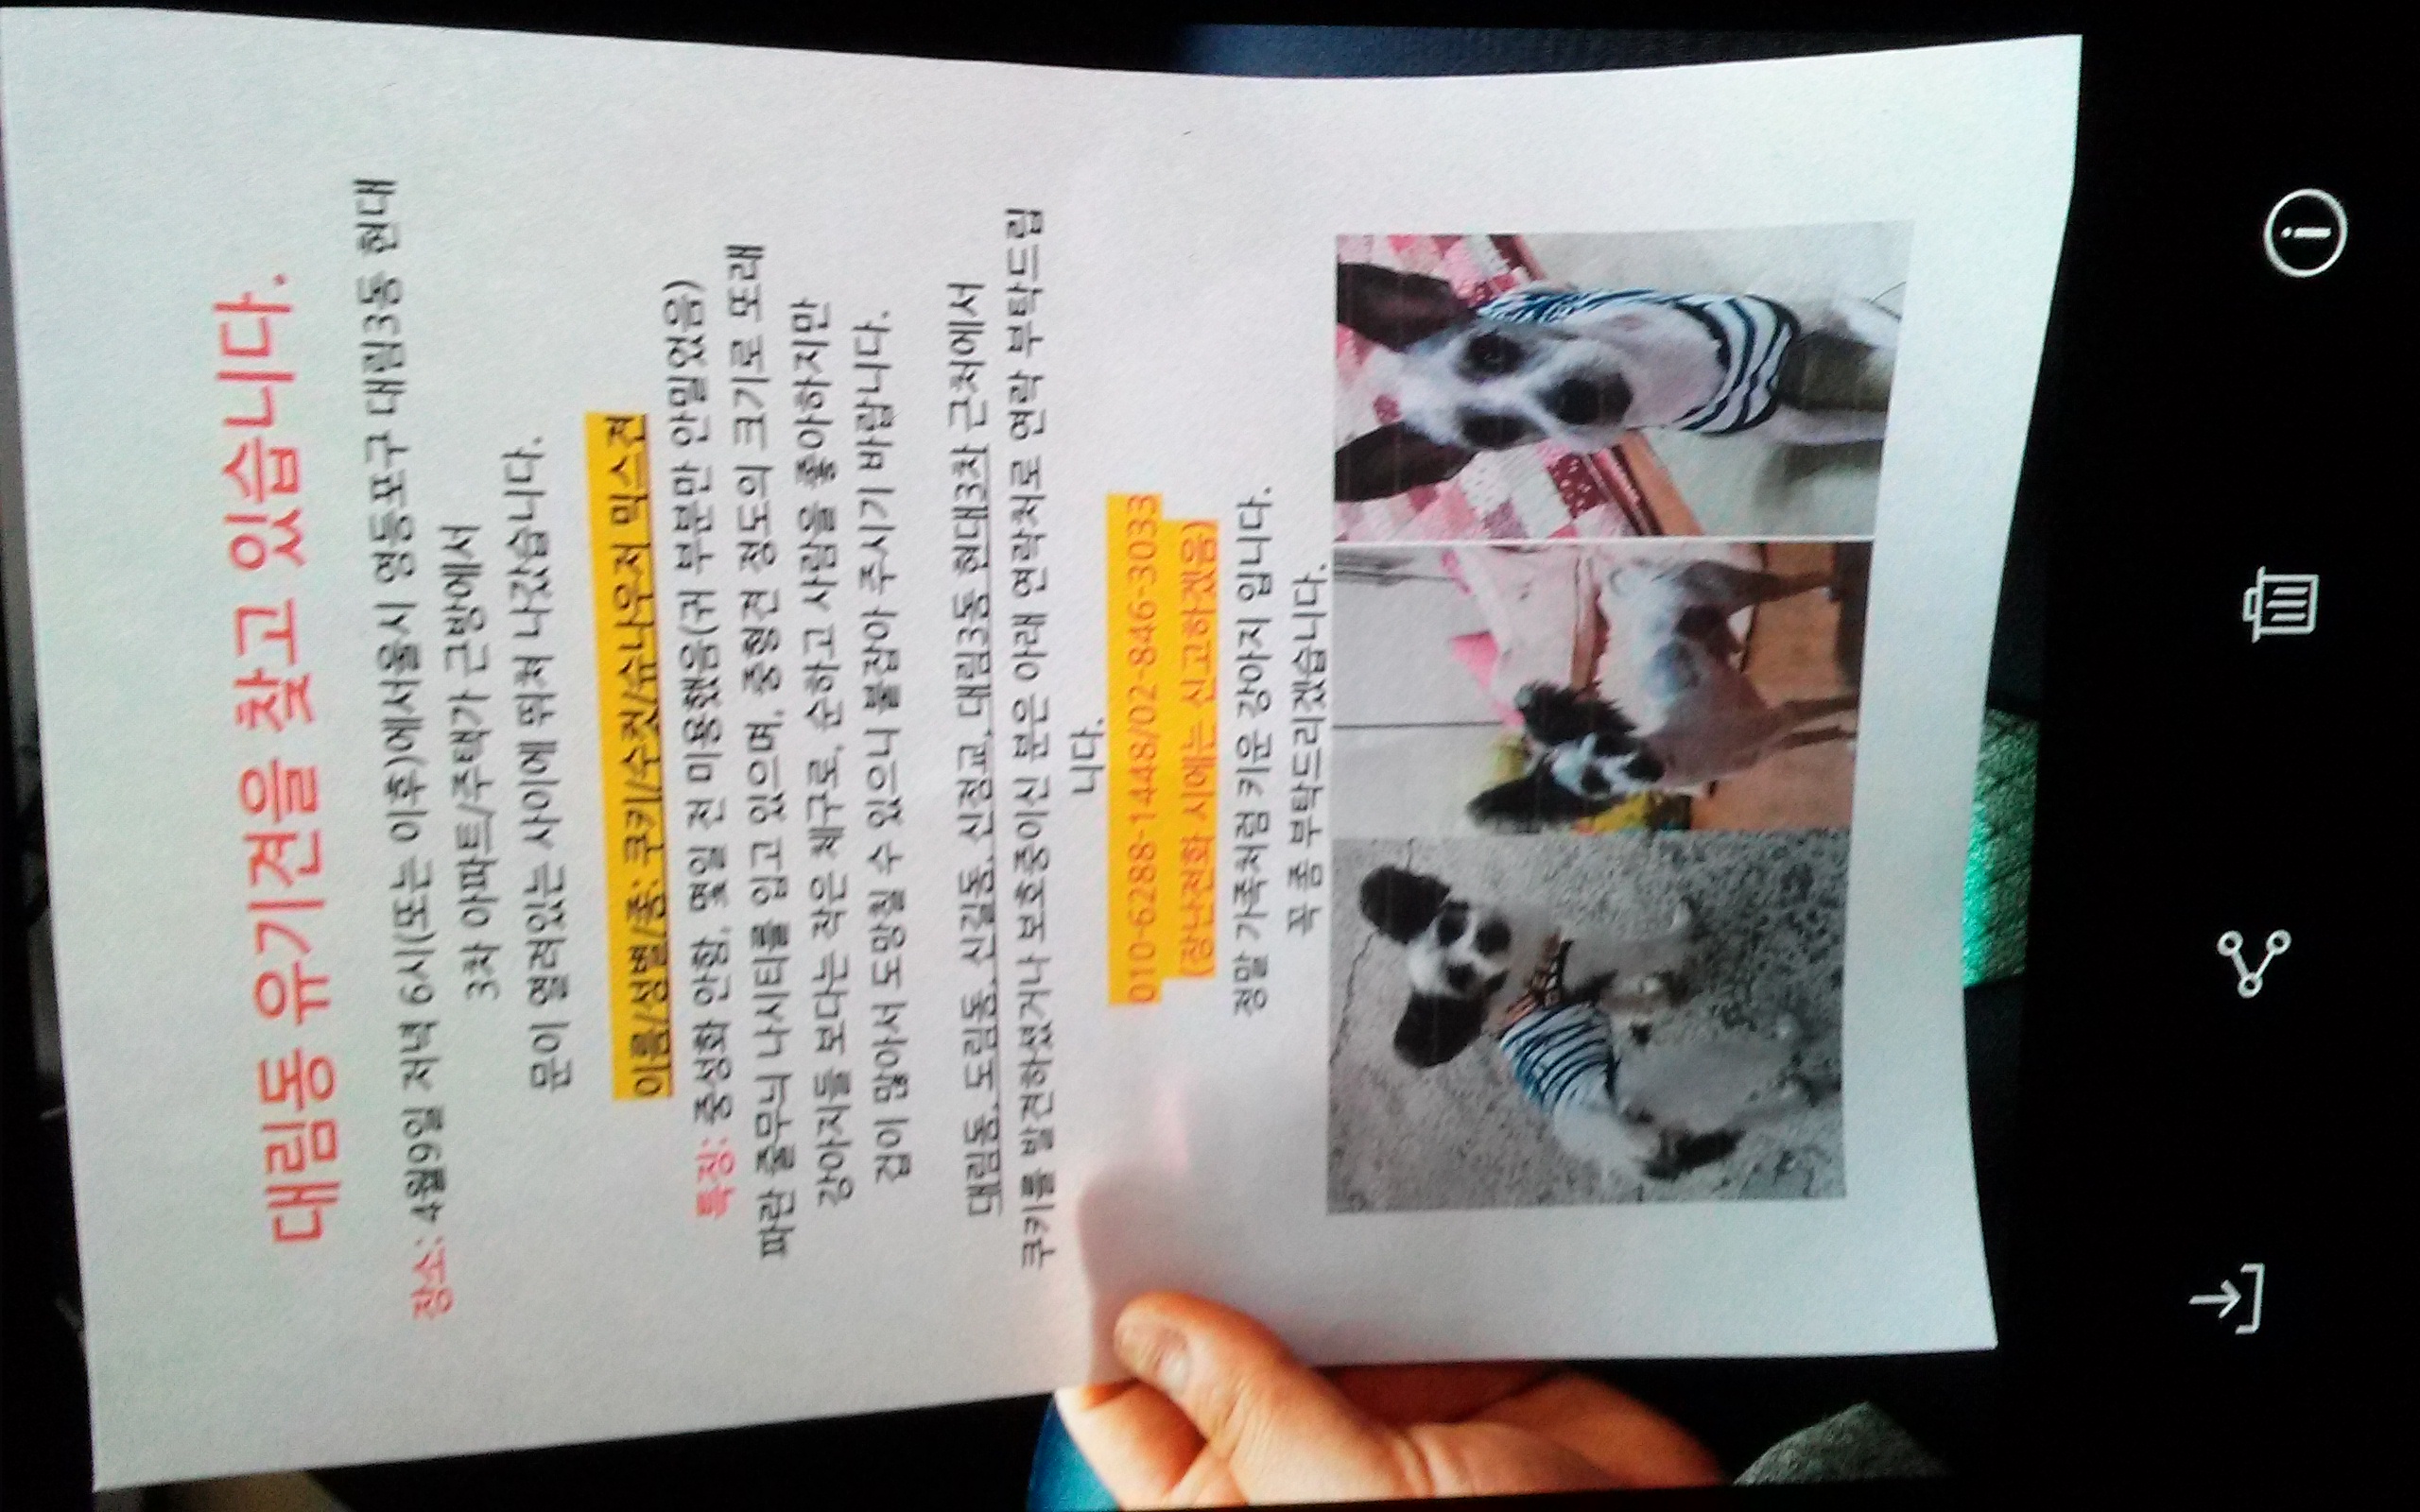 대림동 유기견을 찾고 있습니다.
장소: 4월9일 저녁 6시(또는 이후)에서울시 영등포구 대림3동 현대
3차 아파트/주택가 근방에서
문이 열려있는 사이에 뛰쳐 나갔습니다.
이름/성별/종: 쿠키/수컷/슈나우저 믹스견
특징: 중성화 안함, 몇일 전 미용했음(귀 부분만 안밀었음)
파란 줄무늬 나시티를 입고 있으며, 중형견 정도의 크기로 또래
강아지들 보다는 작은 체구로, 순하고 사람을 좋아하지만
겁이 많아서 도망칠 수 있으니 붙잡아 주시기 바랍니다.
대림동, 도림동, 신길동, 신정교, 대림3동 현대3차 근처에서
쿠키를 발견하셨거나 보호중이신 분은 아래 연락처로 연락 부탁드립
니다.
010-6288-1448/02-846-3033
(장난전화 시에는 신고하겠음)
정말 가족처럼 키운 강아지 입니다.
꼭 좀 부탁드리겠습니다.